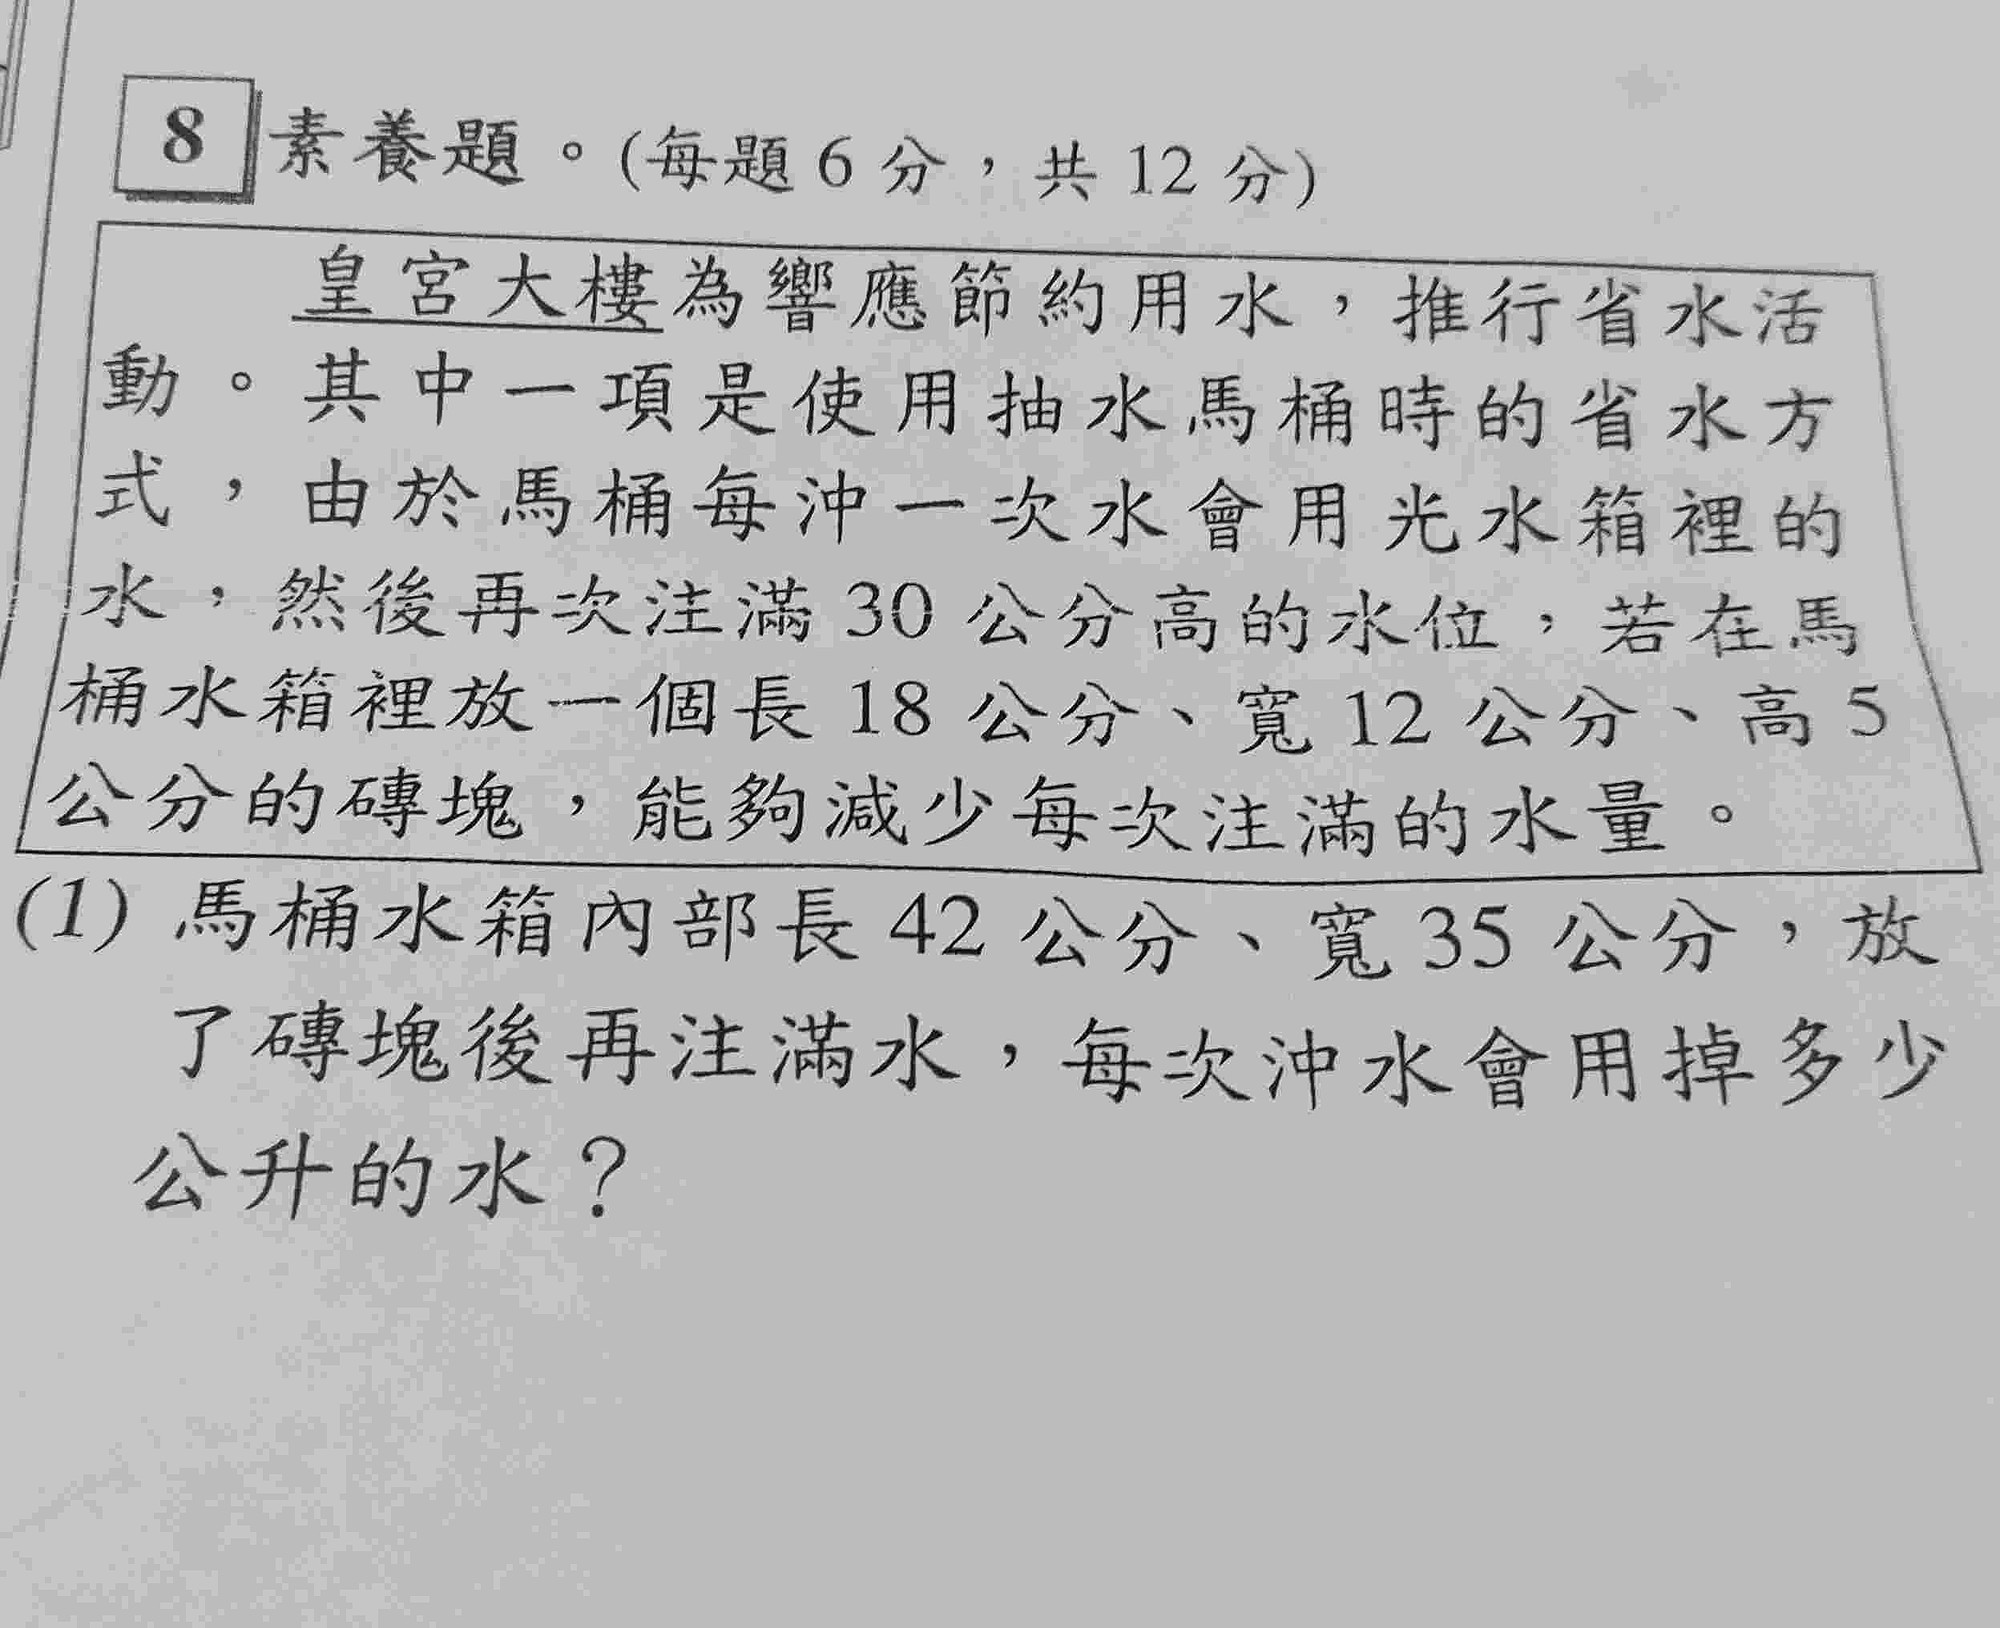 8 素養題。(每題 6 分，共 12 分)
皇宮大樓為響應節約用水，推行省水活
動。其中一項是使用抽水馬桶時的省水方
式，由於馬桶每沖一次水會用光水箱裡的
水，然後再次注滿 30 公分高的水位，若在馬
桶水箱裡放一個長 18 公分、寬 12 公分、高 5
公分的磚塊，能夠減少每次注滿的水量。
(1) 馬桶水箱內部長 42 公分、寬 35 公分，放
了磚塊後再注滿水，每次沖水會用掉多少
公升的水？